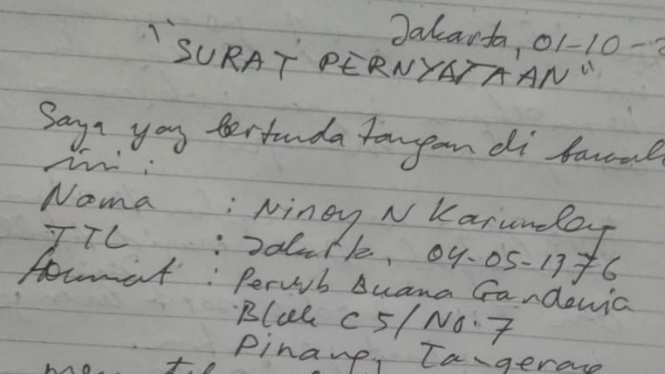 Jakarta, 01-10-
"SURAT PERNYATAAN"
Saya yang bertanda tangan di bawah
ini :
Nama : Ninoy N Karundeng
TTL : Jakarta, 04-05-1976
Alamat : Buana Gardenia
Blok C5/No.7
Pinang, Tangerang